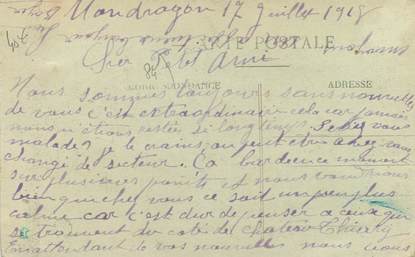 Mondragon 17 juillet 1918
CARTE POSTALE
Cher Petit Ami
CORRESPONDANCE
ADRESSE
Nous sommes toujours sans nouvelle
de vous c'est extraordinaire cela car jamais
nous n'étions restée si longtemps. Seriez vous
malade? je le crains ou peut être avez vous
changé de secteur. Ca barde en ce moment
sur plusieurs points et nous voudrions
bien que chez vous ce soit un peu plus
calme car c'est dur de penser a ceux qui
se trouvent du coté de Chateau Thierry
En attendant de vos nouvelles nous vous